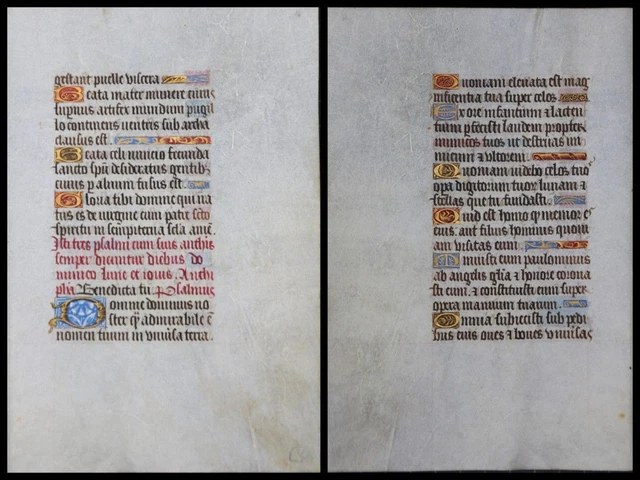 gestant puelle viscera
Beata mater munere cuius
supnus artifex mundum pugil
lo continens ventris sub archa
clausus est.
Beata celi nuncio fecunda
sancto spu desideratus gentib
cuius p alvum fusus est.
Gloria tibi domine qui na
tus es de virgine cum patre scto
spiritu in sempiterna secla ame.
Isti tres psalmi cum suis anthis
semper dicuntur diebus do
minico lune et iovis. Anthi
pha Benedicta tu. Psalmus
Domine dominus no
ster q admirabile e
nomen tuum in univsa terra.
Quoniam elevata est mag
nificentia tua super celos
Ex ore infantium z lacten
tium pfecisti laudem propter
inimicos tuos ut destruas ini
micum z ultorem.
Quoniam videbo celos tuo
opa digitorum tuor lunam z
stellas que tu fundasti.
Quid est homo q memor e
eius. aut filius hominis quoni
am visitas eum.
Minuisti eum paulominus
ab angelis glia z honore corona
sti eum. z constituisti eum super
opera manuum tuarum.
Omnia subiecisti sub pedi
bus eius oves z boves univsas